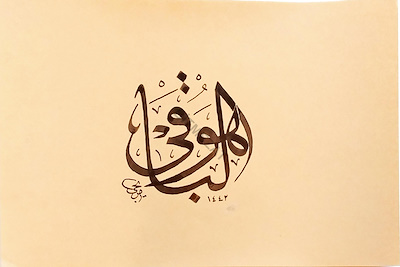 هو الباقي
١٤٤٢